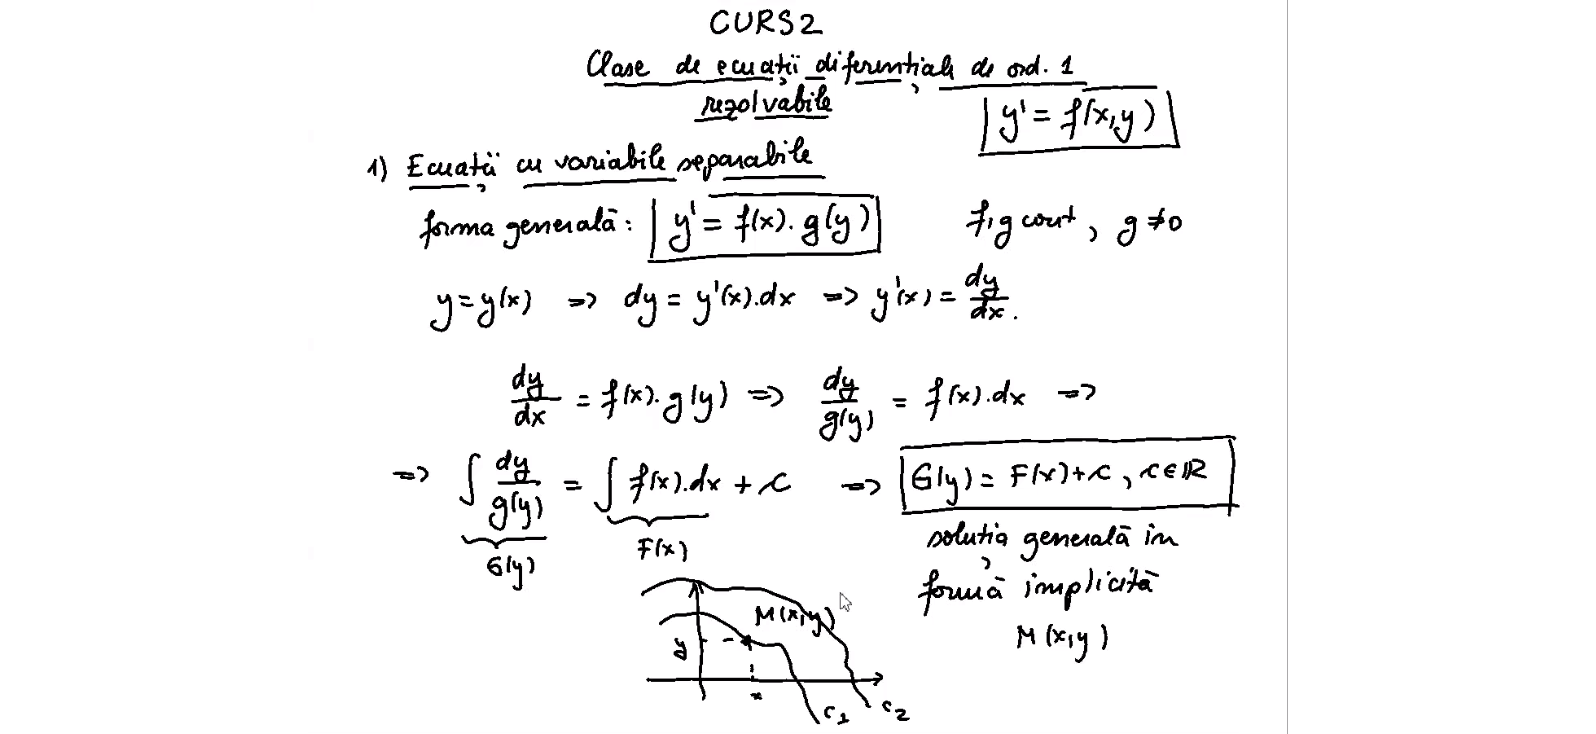 CURS 2
Clase de ecuații diferențiale de ord. 1
rezolvabile
y' = f(x,y)
1) Ecuații cu variabile separabile
forma generală: y' = f(x).g(y) f,g cont, g≠0
y=y(x) => dy = y'(x).dx => y'(x) = dy/dx.
dy/dx = f(x).g(y) => dy/g(y) = f(x).dx =>
=> ∫ dy/g(y) = ∫ f(x).dx + c => G(y) = F(x)+c, c∈R
G(y) F(x)
soluția generală în
formă implicită
M(x,y)
M(x,y)
y
x
c1 c2